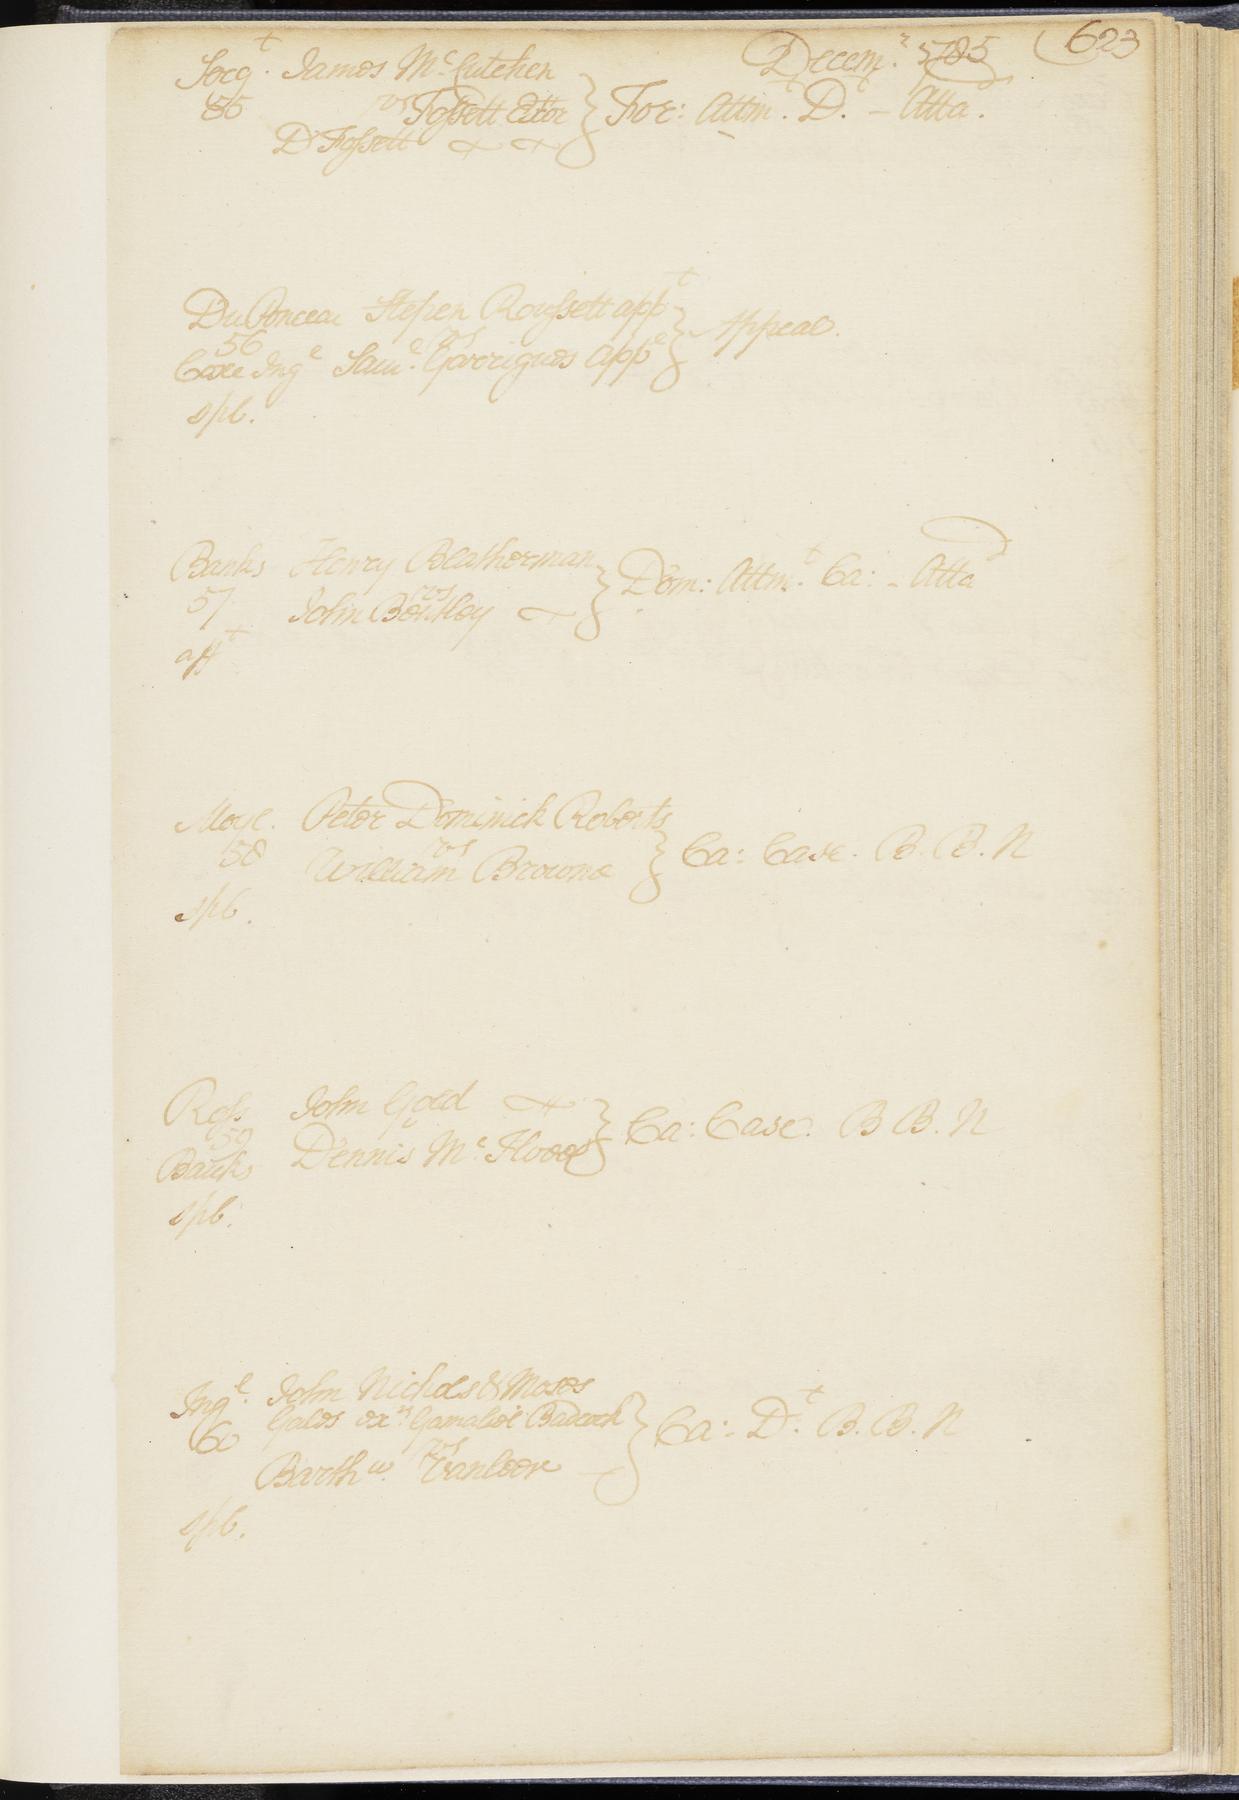 Decem.r 1785 623
Serg.t James McCutchen
55 vs Fossett For: Attm.t D.t - Atta.d
D Fossett
DuPonceau Stephen Roussett app.t
56 vs Appeal.
Coxe Ing.l Sam.l Garrigues app.e
spb.
Banks Henry Bleatherman
57 vs Dom: Attm.t Ca: - Atta.d
John Bentley
aff.t
Moyl. Peter Dominick Roberts
58 vs Ca: Case. B. B. N
William Browne
spb.
Ross John Gold
59 Ca: Case. B B. N
Banks Dennis Mc
spb.
Ing.l John Nichols & Moses
60 Gales ex.rs Gamaliel Badcock Ca: D.t B. B. N
vs
Barth.w
spb.